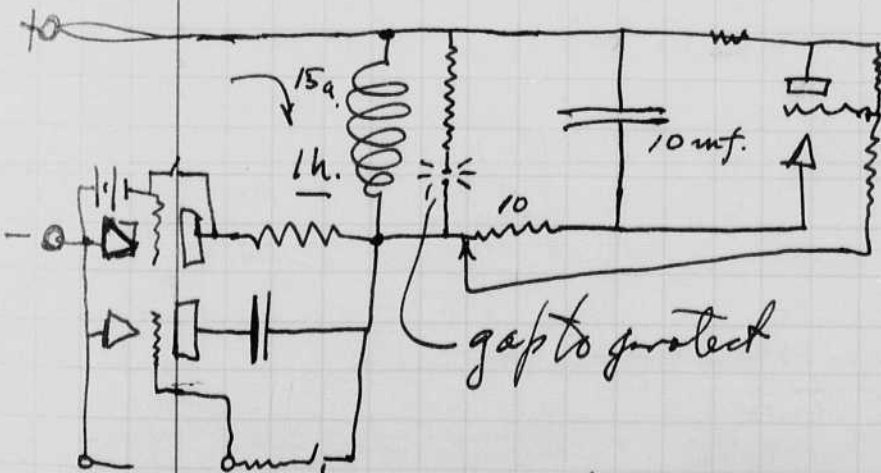 +
15a.
1h.
10 mf.
-
10
gap to protect